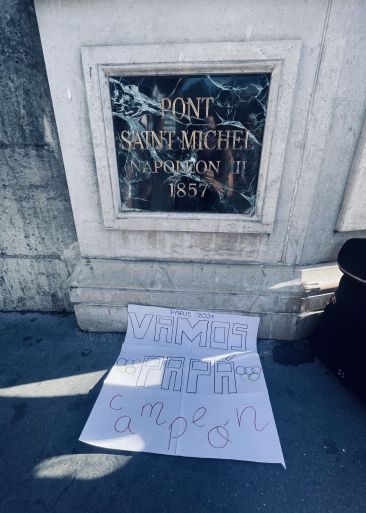 PONT
SAINT MICHEL
NAPOLEON III
1857
PARIS 2024
VAMOS
PAPÁ
campeón